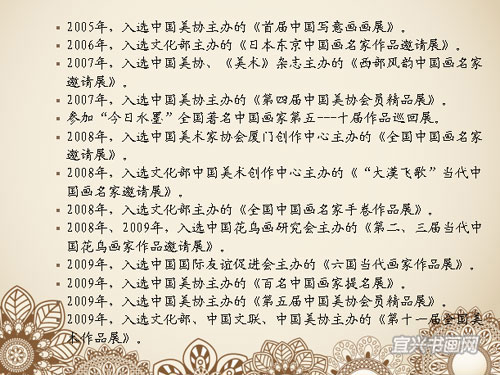 2005年，入选中国美协主办的《首届中国写意画画展》。
2006年，入选文化部主办的《日本东京中国画名家作品邀请展》。
2007年，入选中国美协、《美术》杂志主办的《西部风韵中国画名家
邀请展》。
2007年，入选中国美协主办的《第四届中国美协会员精品展》。
参加“今日水墨”全国著名中国画家第五---十届作品巡回展。
2008年，入选中国美术家协会厦门创作中心主办的《全国中国画名家
邀请展》。
2008年，入选文化部中国美术创作中心主办的《“大漠飞歌”当代中
国画名家邀请展》。
2008年，入选文化部主办的《全国中国画名家手卷作品展》。
2008年、2009年，入选中国花鸟画研究会主办的《第二、三届当代中
国花鸟画家作品邀请展》。
2009年，入选中国国际友谊促进会主办的《六国当代画家作品展》。
2009年，入选中国美协主办的《百名中国画家提名展》。
2009年，入选中国美协主办的《第五届中国美协会员精品展》。
2009年，入选文化部、中国文联、中国美协主办的《第十一届全国美
术作品展》。
宜兴书画网